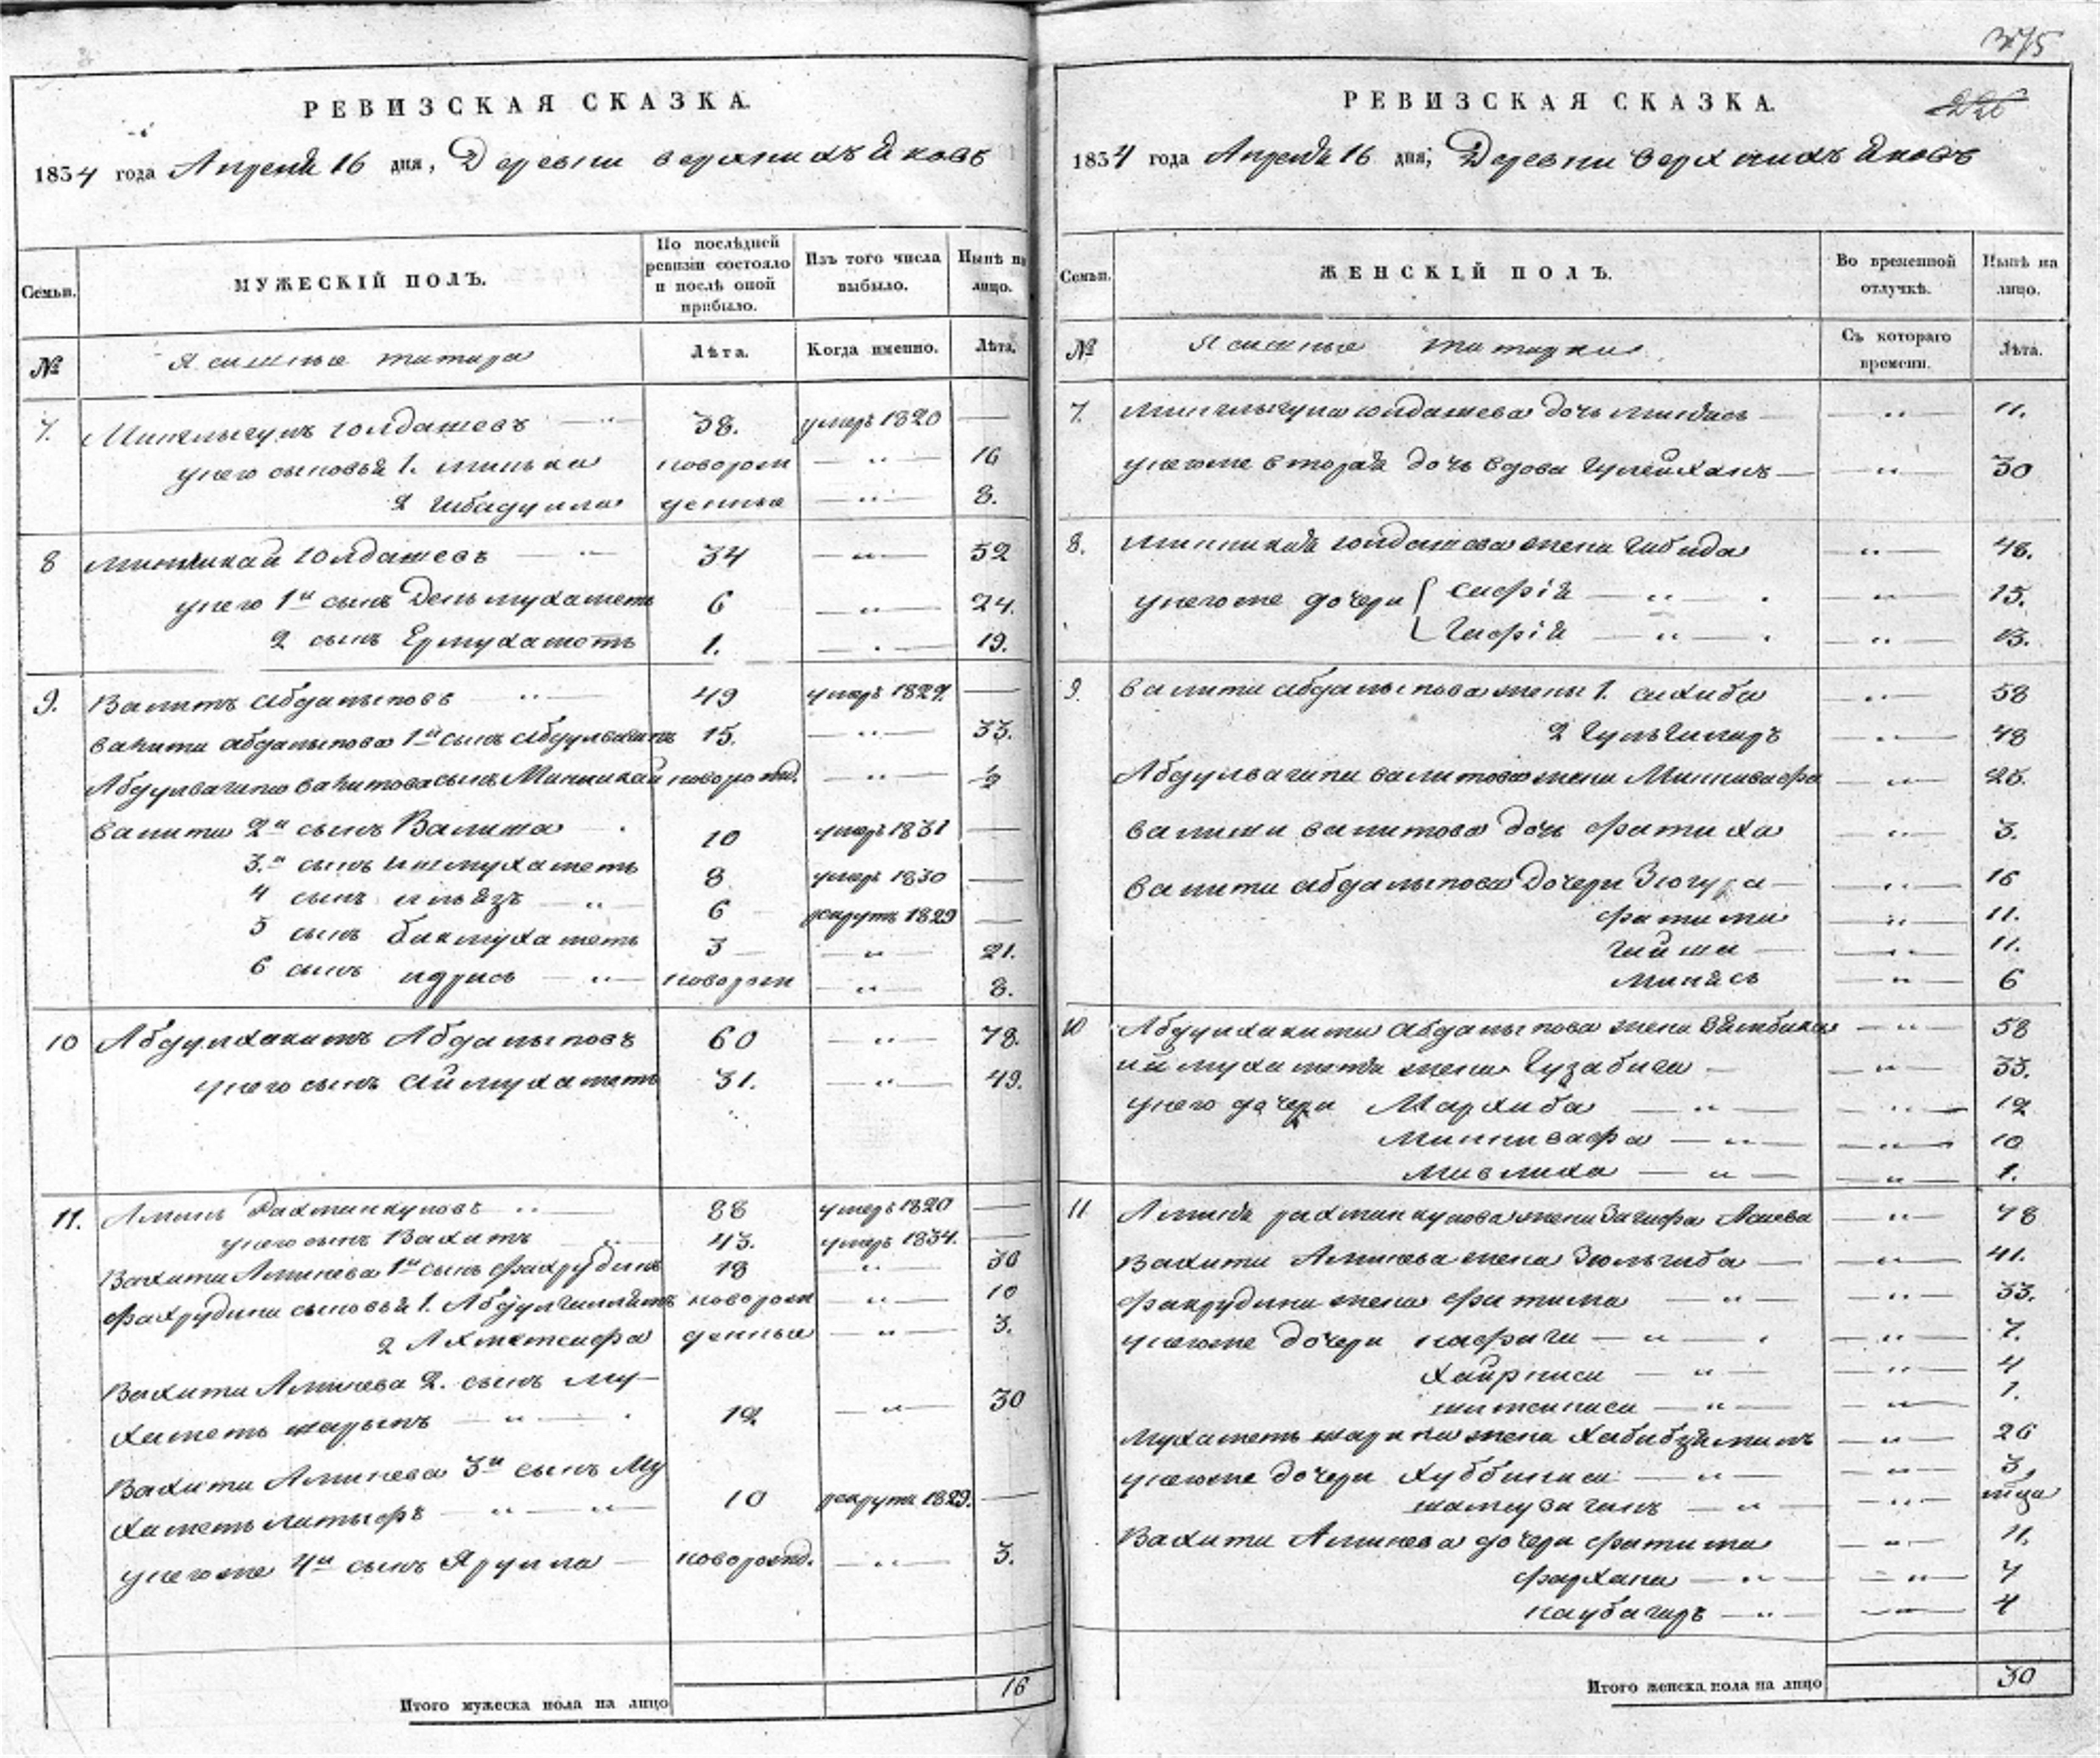 375
РЕВИЗСКАЯ СКАЗКА.
1834 года Апреля 16 дня, Деревни верхнихъ Яковъ
Семьи.
МУЖЕСКІЙ ПОЛЪ.
По послѣдней ревизіи состояло и послѣ оной прибыло.
Изъ того числа выбыло.
Нынѣ на лицо.
№
Ясашные татара
Лѣта.
Когда именно.
Лѣта.
7. юлдашевъ 38. умеръ 1820
унего сыновья 1. новорож 16
2 Гибадулла денные 8.
8 Миникай юлдашевъ 34 52
унего 1й сынъ Деньмухаметь 6 24.
2 сынъ Ермухаметь 1. 19.
9. Валитъ абдалыповъ 49 умеръ 1829.
валита абдалыпова 1й сынъ абдулвагапъ 15. 33.
Абдулвагапа валитова сынъ Миникай новорожд. 1/2
валита 2й сынъ Валиша 10 умеръ 1831
3й сынъ ишмухаметь 8 умеръ 1830
4 сынъ ильязъ 6 рекрутъ 1829
5 сынъ бикмухаметь 3 21.
6 сынъ идрисъ новорож 8.
10 Абдулхакимъ Абдалыповъ 60 78.
унего сынъ аймухаметь 31. 49.
11. Аминь Рахманкуловъ 88 умеръ 1820
унего сынъ Вахитъ 43. умеръ 1834.
Вахита Аминева 1й сынъ Фахрудинъ 18 36
Фахрудина сыновья 1. новорож 10
2 Ахметсафа денные 3.
Вахита Аминева 2. сынъ Му-
хаметь шарыпъ 12 30
Вахита Аминева 3й сынъ Му
хаметь латыфъ 10 рекрутъ 1829.
унегоже 4й сынъ Ярулла новорожд. 3.
Итого мужеска пола на лицо 16
РЕВИЗСКАЯ СКАЗКА.
226
1834 года Апреля 16 дня, Деревни верхнихъ Яковъ
Семьи.
ЖЕНСКІЙ ПОЛЪ.
Во временной отлучкѣ.
Нынѣ на лицо.
№
Ясашные татарки
Съ котораго времени.
Лѣта.
7. юлдашева дочь 11.
унегоже вторая дочь вдова 30
8. Миникая юлдашева жена Габида 48.
унегоже дочери Сафрія 15.
Гафрія 13.
9. валита абдалыпова жены 1. сахиба 58
2 Гульгиларъ 48
Абдулвагапа валитова жена Миниваафа 25.
валиши валитова дочь фатиха 3.
валита абдалыпова дочери Зюгура 16
фатима 11.
гайша 11.
Миняса 6
10 Абдулхакима абдалыпова жена 58
аймухаметя жена Гузабига 33.
унего дочери Мархиба 12
Минивафа 10
Мавлиха 1.
11 Аминя рахманкулова жена Загафа 78
Вахита Аминева жена Зюльгаба 41.
фахрудина жена фатима 33.
унегоже дочери нафига 7.
хайрниса 4
1.
Мухаметь шарипа жена Хабибзямалъ 26
унегоже дочери Хуббиниса 3,
Вахита Аминева дочери фатима 11.
фархана 7
каубагаръ 4
Итого женска пола на лицо 30